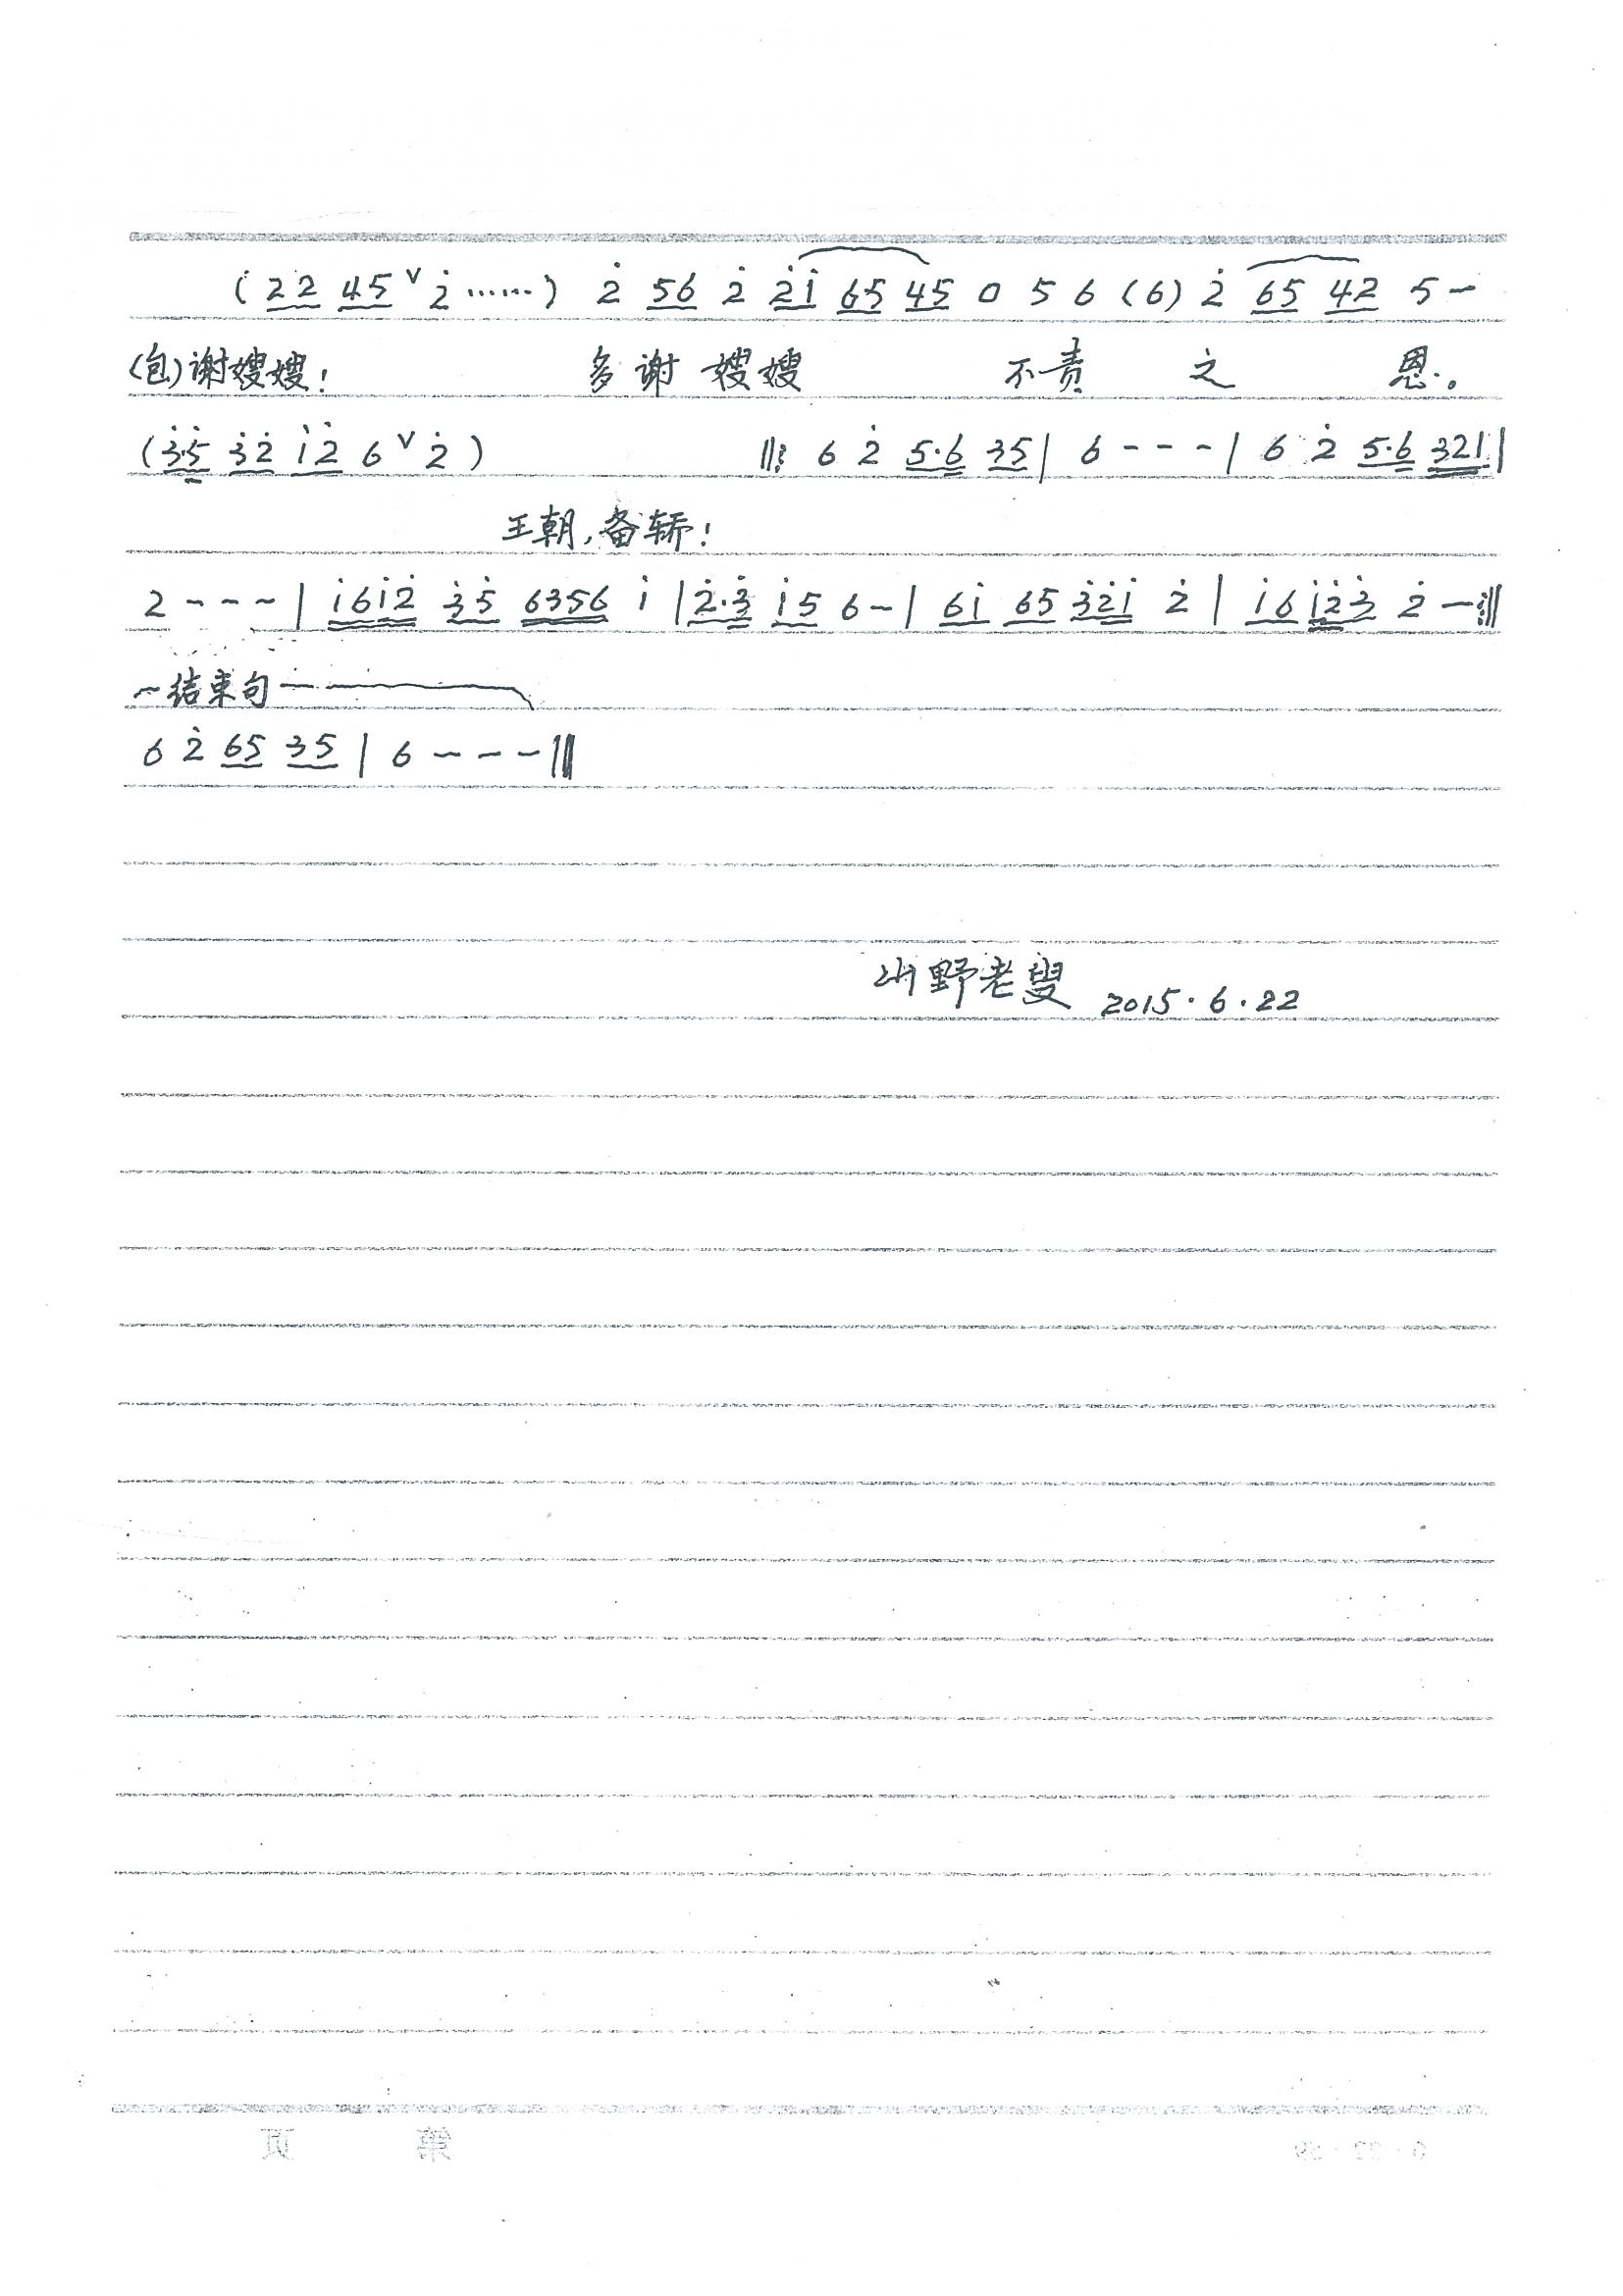 (22 45 ∨ 2̇ ……) 2̇ 56 2̇ 2̇1̇ 65 45 0 5 6 (6) 2̇ 65 42 5 –
(包)谢嫂嫂! 多谢 嫂嫂 不责 之 恩。
(3̇·5̇ 3̇2̇ 1̇2̇ 6 ∨ 2̇) ‖: 6 2̇ 5·6 35 | 6 - - - | 6 2̇ 5·6 321 |
王朝,备轿!
2 - - - | 1̇61̇2̇ 3̇5̇ 6356 1̇ | 2̇·3̇ 1̇5 6 – | 61̇ 65 3̇2̇1̇ 2̇ | 1̇6 1̇2̇3̇ 2̇ – :‖
结束句
6 2̇ 65 35 | 6 – – – ‖
山野老叟 2015·6·22
第 页